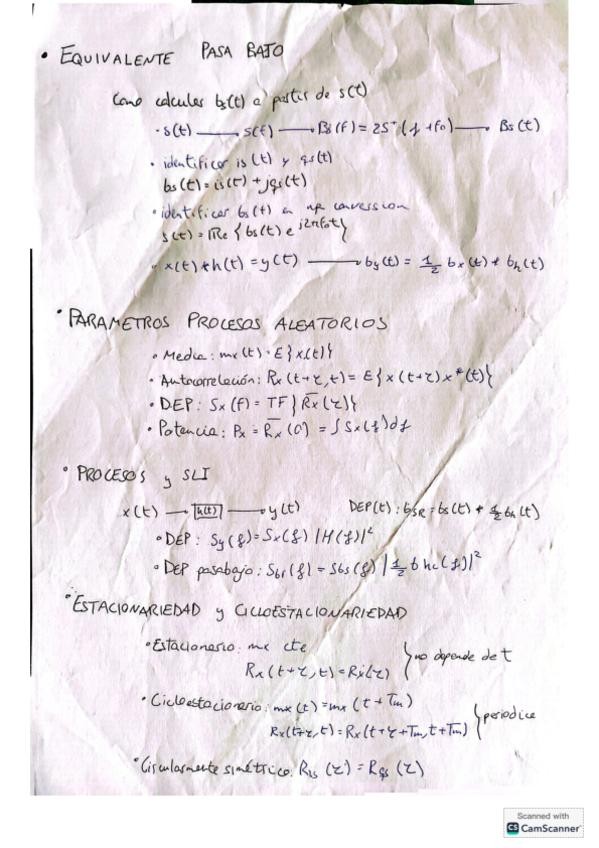 • EQUIVALENTE PASA BAJO
Como calcular bs(t) a partir de s(t)
· s(t) ⟶ S(f) ⟶ Bs(f) = 2S⁺(f + f₀) ⟶ Bs(t)
• identificar is(t) y qs(t)
bs(t) = is(t) + jqs(t)
• identificar bs(t) en
s(t) = Re{bs(t) e^{j2πf₀t}}
• x(t) * h(t) = y(t) ⟶ by(t) = 1/2 bx(t) * bh(t)
• PARAMETROS PROCESOS ALEATORIOS
• Media: mx(t) = E{x(t)}
• Autocorrelación: Rx(t+τ,t) = E{x(t+τ)x*(t)}
• DEP: Sx(f) = TF{R̅x(τ)}
• Potencia: Px = R̅x(0) = ∫Sx(f)df
• PROCESOS y SLI
x(t) ⟶ h(t) ⟶ y(t) DEP(t): bSR = bs(t) * 1/2 bh(t)
• DEP: Sy(f) = Sx(f) |H(f)|²
• DEP pasabajo: Sbr(f) = Sbs(f) |1/2 bhc(f)|²
• ESTACIONARIEDAD y CICLOESTACIONARIEDAD
• Estacionario: mx cte
Rx(t+τ,t) = Rx(τ) } no depende de t
• Cicloestacionario: mx(t) = mx(t + Tm)
Rx(t+τ,t) = Rx(t+τ+Tm, t+Tm) } periodica
• Circularmente simétrico: Ris(τ) = Rqs(τ)
Scanned with
CS CamScanner